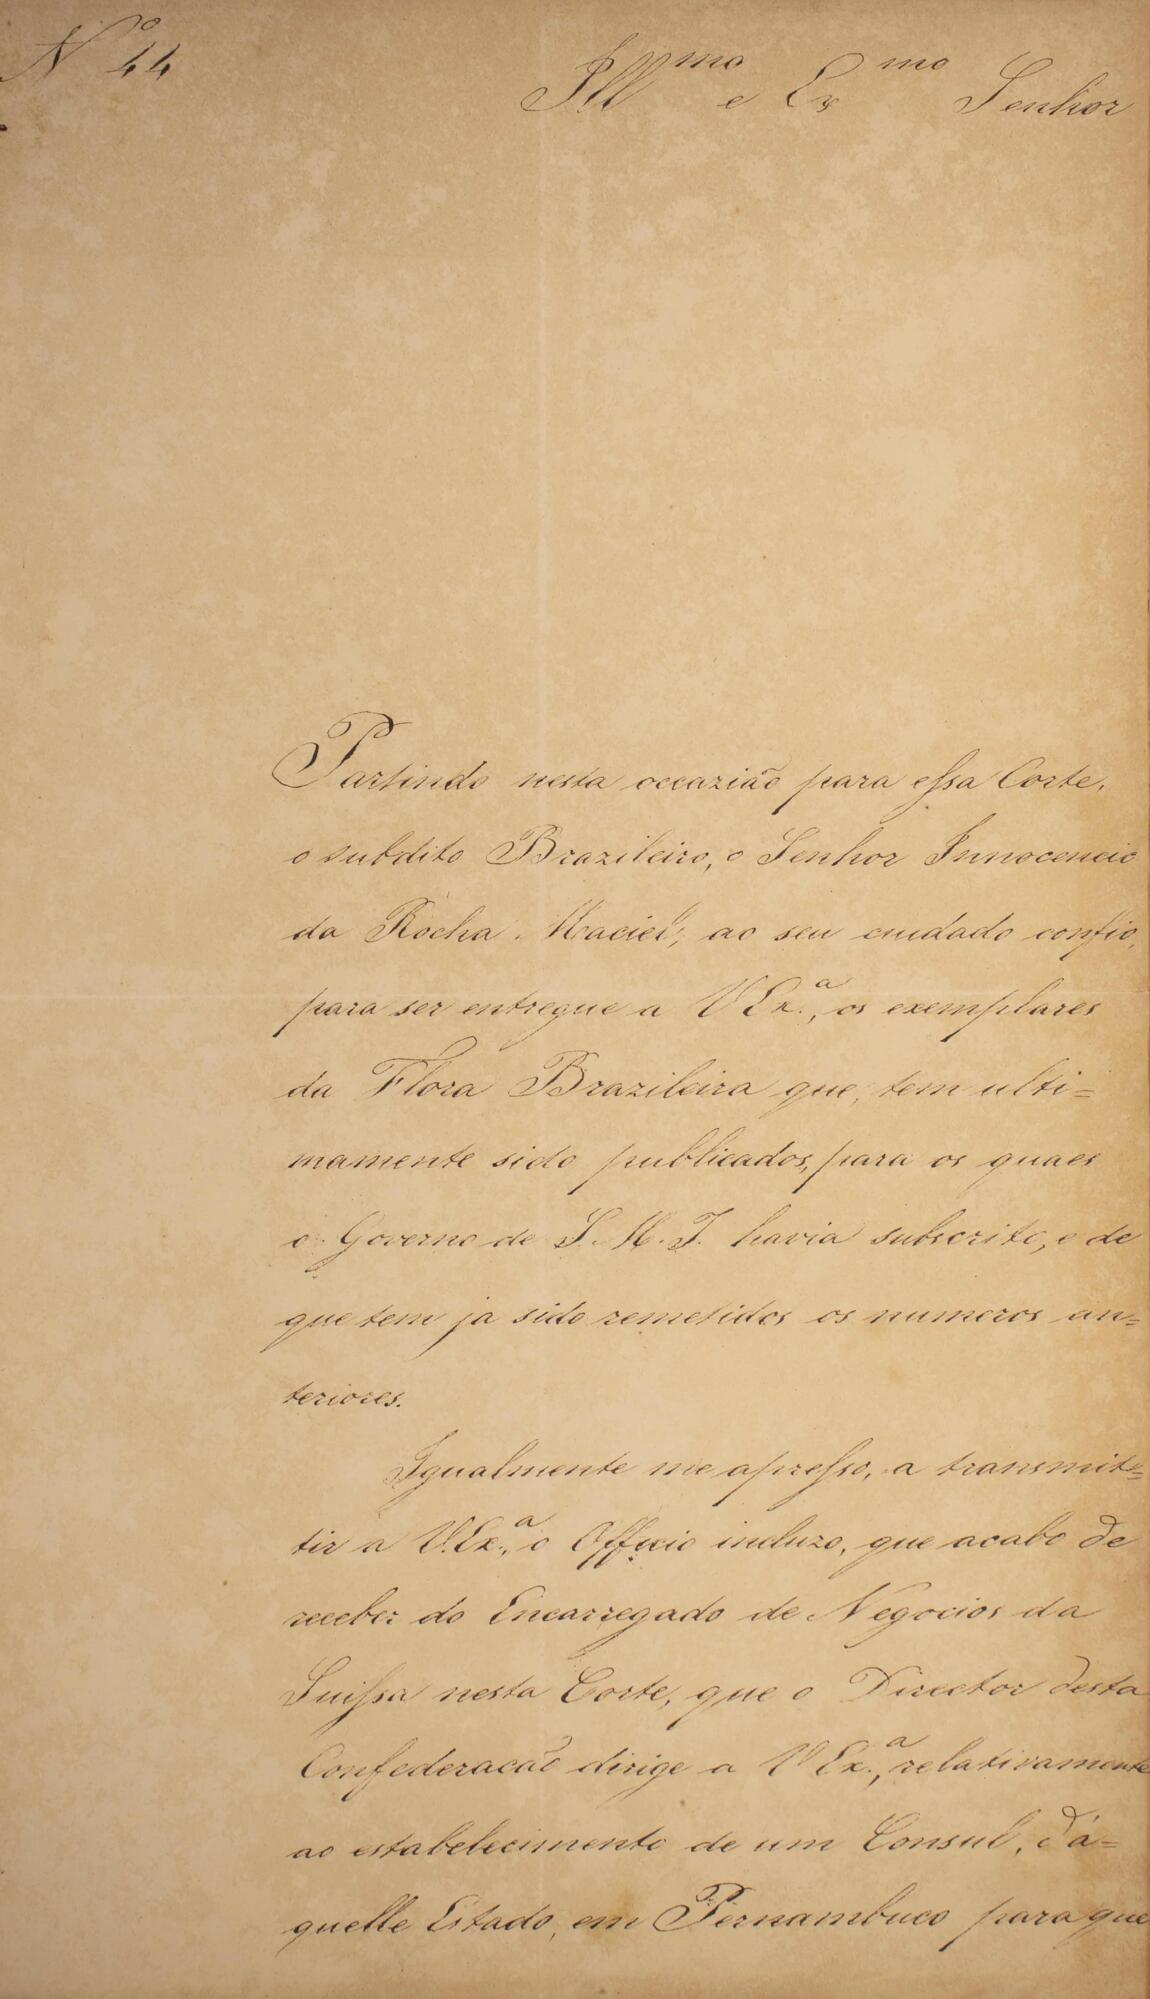 Nº 44
Illmo e Exmo Senhor
Partindo nesta occazião para essa Corte,
o subdito Brazileiro, o Senhor Innocencio
da Rocha Maciel, ao seu cuidado confio,
para ser entregue a V Ex.ª, os exemplares
da Flora Brazileira que, tem ulti=
mamente sido publicados, para os quaes
o Governo de S. M. I. havia subscrito, e de
que tem ja sido remetidos os numeros an=
teriores.
Igualmente me apresso, a transmit=
tir a V. Ex.ª, o Officio incluzo, que acabo de
receber do Encarregado de Negocios da
Suissa nesta Corte, que o Director desta
Confederacão dirige a V Ex.ª, relativamente
ao estabelecimento de um Consul, d'a=
quelle Estado, em Pernambuco para que